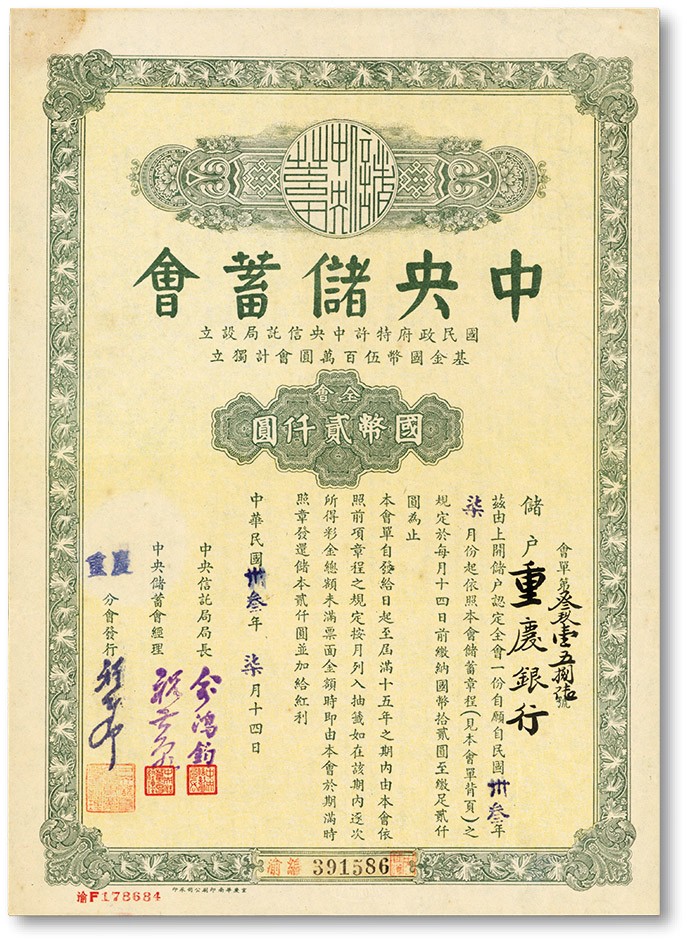 中央儲蓄會
國民政府特許中央信託局設立
基金國幣伍百萬圓會計獨立
全會
國幣貳仟圓
會單第叁玖壹五捌陸號
儲戶重慶銀行
茲由上開儲戶認定全會一份自願自民國卅叁年
柒月份起依照本會儲蓄章程(見本會單背頁)之
規定於每月十四日前繳納國幣拾貳圓至繳足貳仟
圓為止
本會單自發給日起至屆滿十五年之期內由本會依
照前項章程之規定按月列入抽籤如在該期內逐次
所得彩金總額未滿票面金額時即由本會於期滿時
照章發還儲本貳仟圓並加給紅利
中華民國卅叁年柒月十四日
中央信託局局長 俞鴻鈞
中央儲蓄會經理
重慶分會發行
渝 391586
渝F178684
重慶華南印刷公司承印